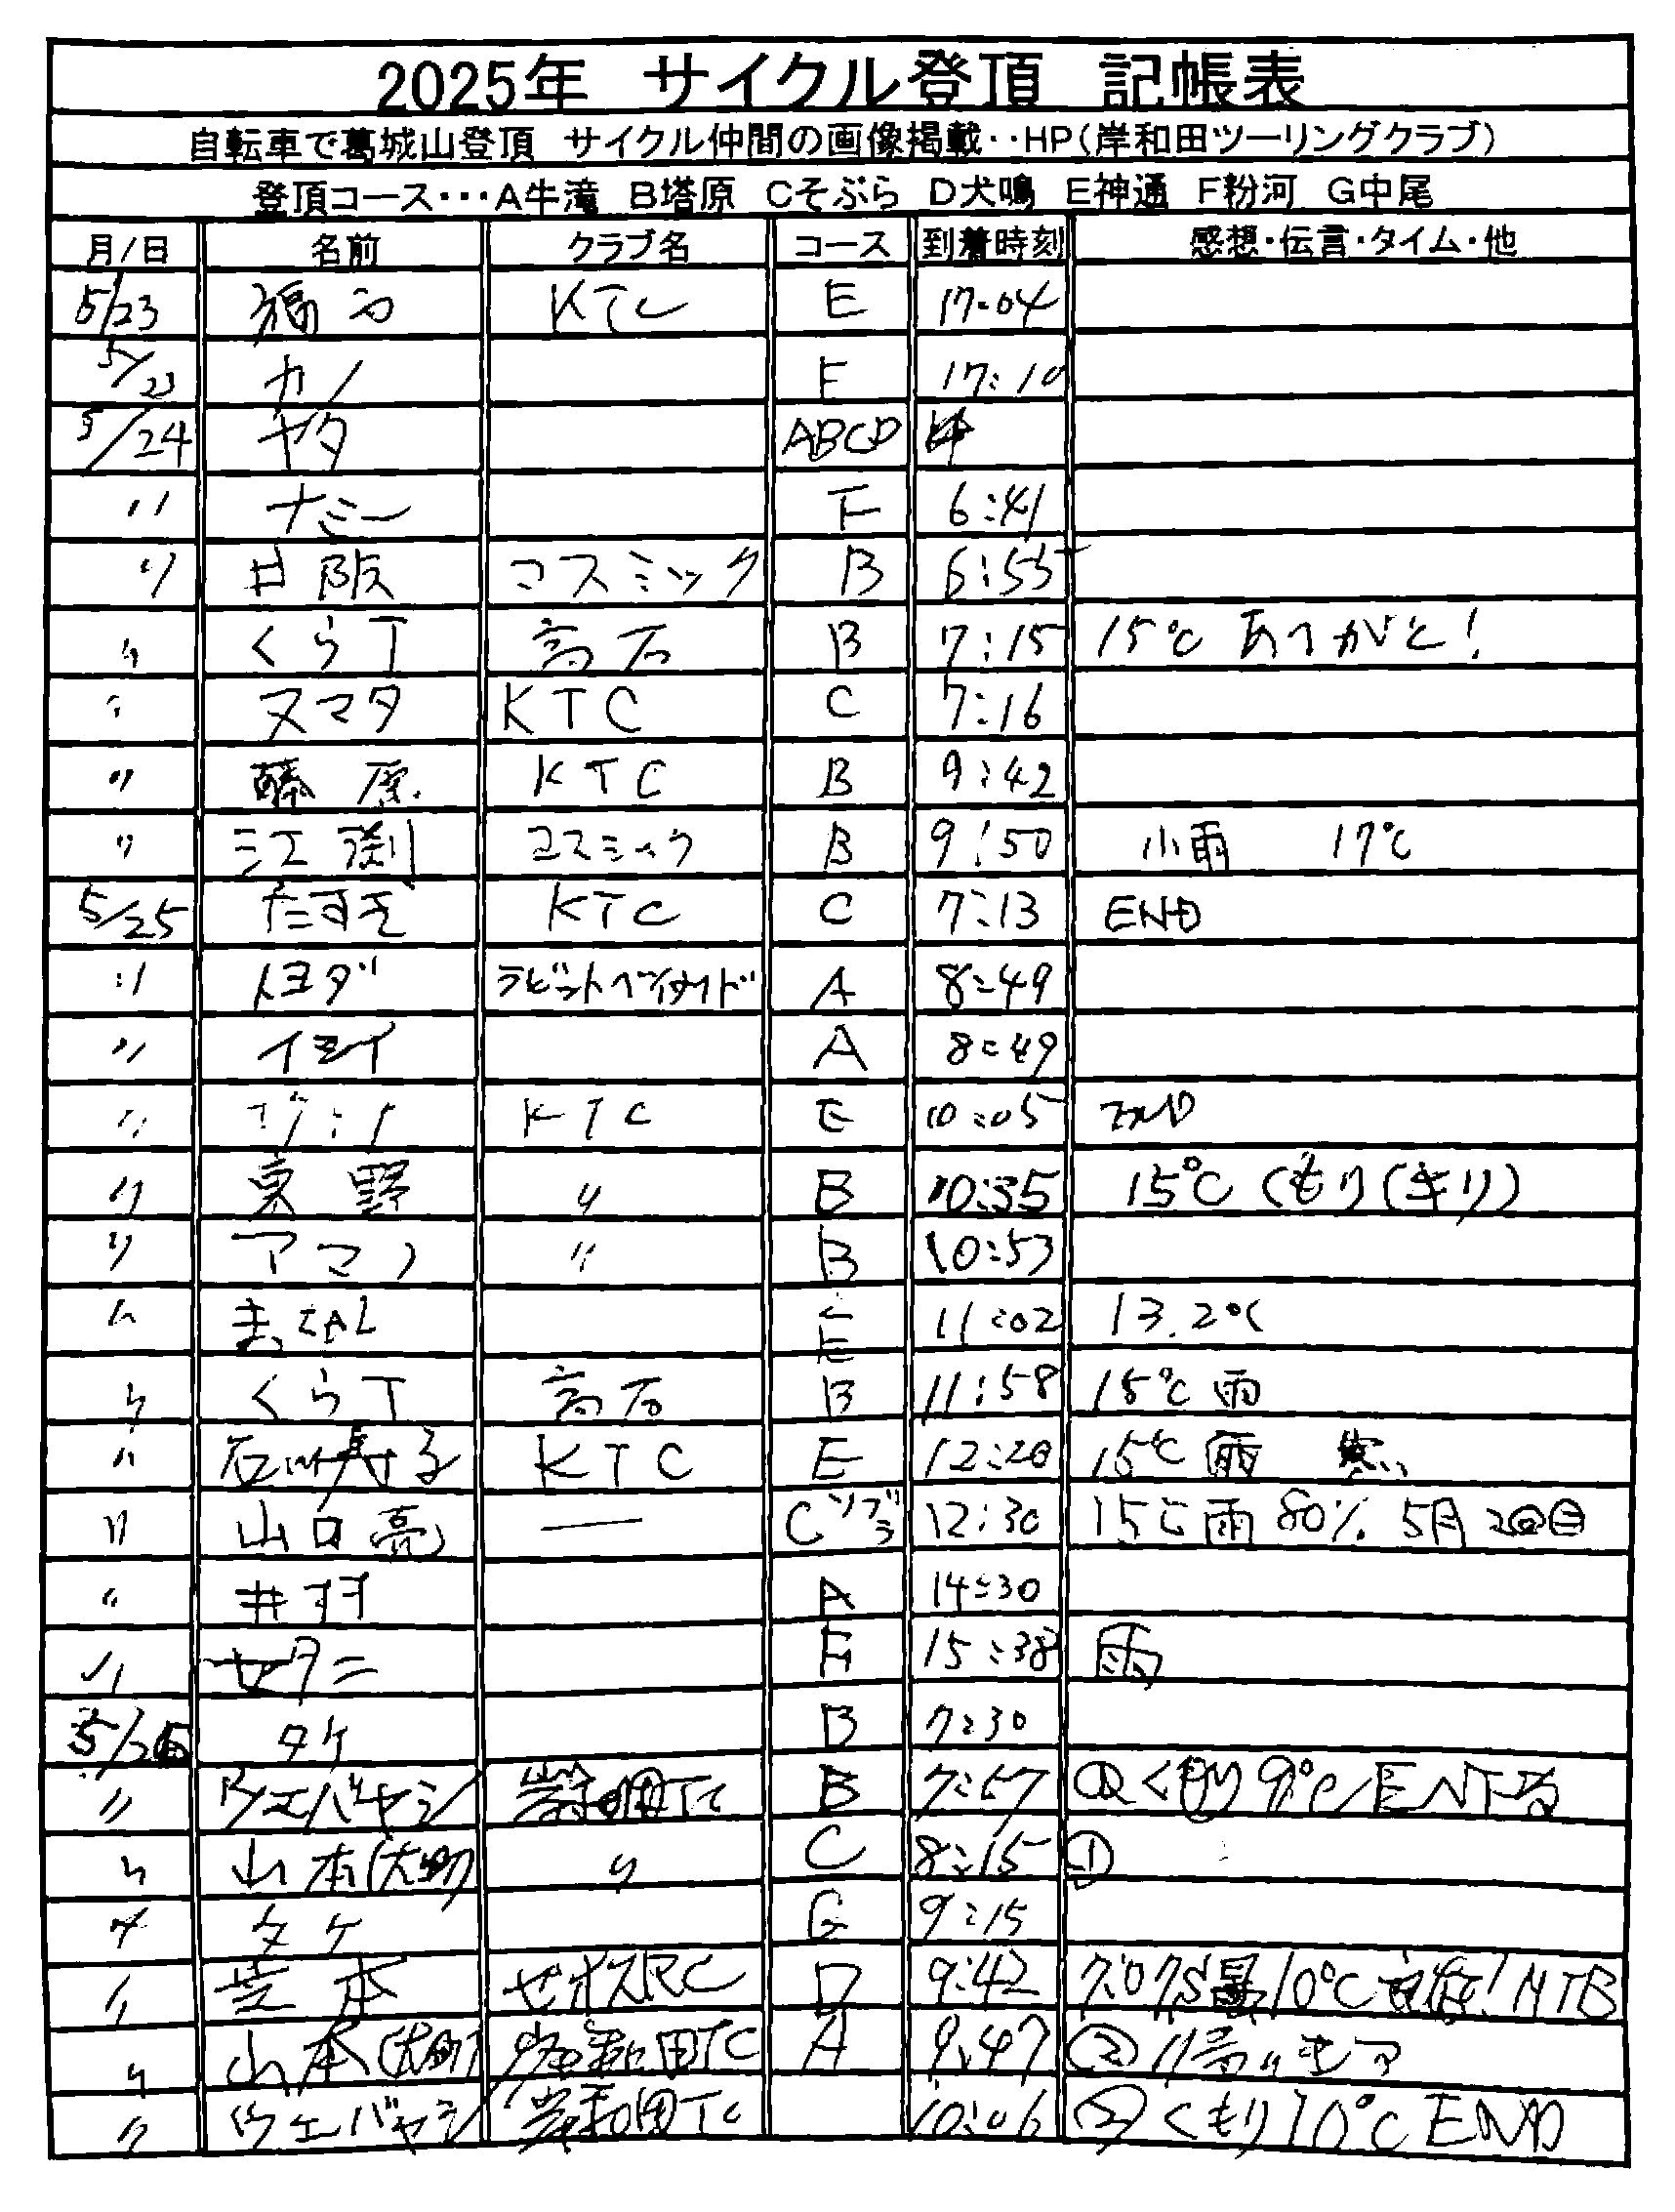 2025年 サイクル登頂 記帳表
自転車で葛城山登頂 サイクル仲間の画像掲載‥HP(岸和田ツーリングクラブ)
登頂コース･･･A牛滝 B塔原 Cそぶら D犬鳴 E神通 F粉河 G中尾
月/日 名前 クラブ名 コース 到着時刻 感想･伝言･タイム･他
5/23 KTC E 17:04
5/23 カノ E 17:10
5/24 ヤタ ABCD
〃 ナミー F 6:41
〃 井阪 コスミック B 6:55
〃 くらT 高石 B 7:15 15℃ ありがと!
〃 ヌマタ KTC C 7:16
〃 藤原 KTC B 9:42
〃 江渕 コスミック B 9:50 小雨 17℃
5/25 KTC C 7:13 END
〃 トヨダ ラビットベンサイド A 8:49
〃 イシイ A 8:49
〃 KTC E 10:05 END
〃 東野 〃 B 10:35 15℃ くもり(キリ)
〃 アマノ 〃 B 10:53
〃 E 11:02 13.2℃
〃 くらT 高石 B 11:58 15℃ 雨
〃 石川寿子 KTC E 12:20 15℃ 雨 寒い
〃 山口亮 ― Cソブラ 12:30 15℃雨 80% 5月2回目
〃 井羽 A 14:30
〃 セタニ 15:38 雨
5/26 タケ B 7:30
〃 ウエバヤシ 岸和田TC B 7:57 ①くもり 9℃
〃 山本(大助) 〃 C 8:15 ①
〃 タケ G 9:15
〃 芝本 ゼオスRC D 9:42 10℃ MTB
〃 山本(大助) 岸和田TC A 9:47 ②
〃 ウエバヤシ 岸和田TC 10:06 ②くもり10℃ END